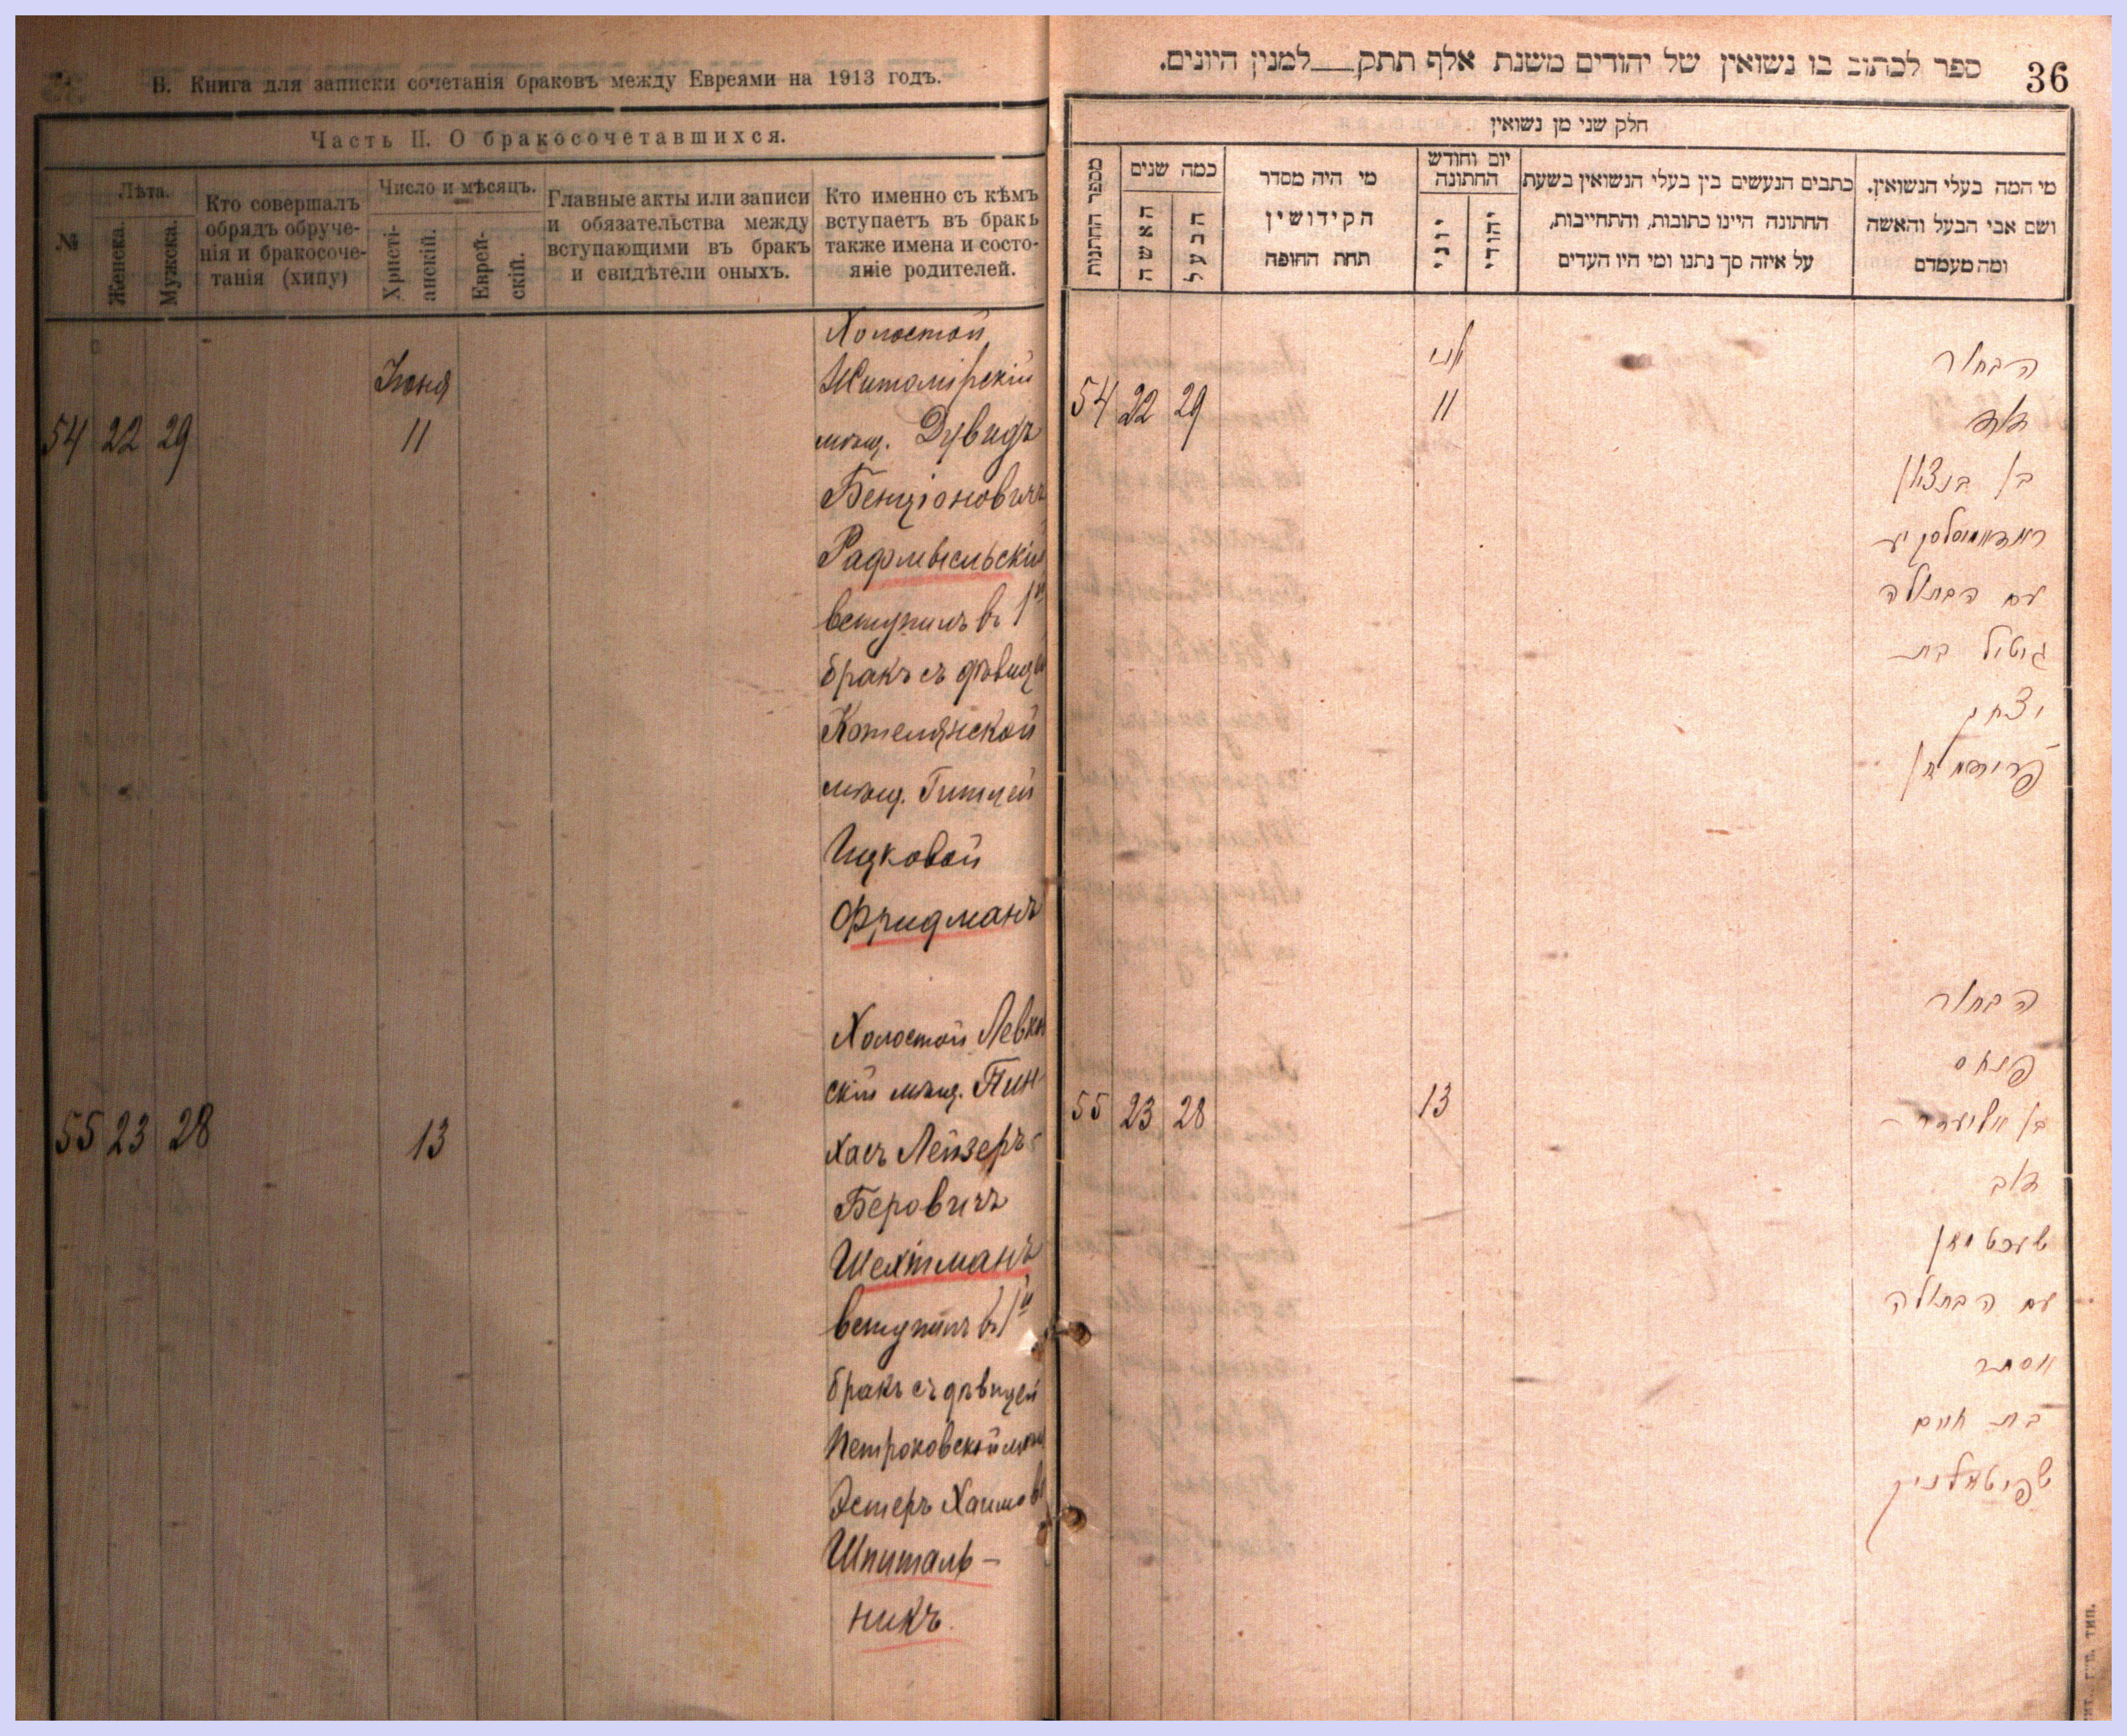 В. Книга для записки сочетанія браковъ между Евреями на 1913 годъ.
Часть II. О бракосочетавшихся.
№
Лѣта.
Женска.
Мужска.
Кто совершалъ
обрядъ обруче-
нія и бракосоче-
танія (хипу)
Число и мѣсяцъ.
Христі-
анскій.
Еврей-
скій.
Главные акты или записи
и обязательства между
вступающими въ бракъ
и свидѣтели оныхъ.
Кто именно съ кѣмъ
вступаетъ въ бракъ
также имена и состо-
яніе родителей.
Холостой
Іюня
Житомірскій
54 22 29 11
мѣщ. Дувидъ
Бенціоновичъ
вступилъ въ 1й
бракъ съ дѣвицей
Котелянской
мѣщ. Гитлей
Ицковой
Фридманъ
Холостой Левков
скій мѣщ. Пин-
55 23 28 13
хасъ Лейзеръ-
Беровичъ
Шехтманъ
вступилъ въ 1й
бракъ съ дѣвицей
Эстеръ Хаимов
Шпиталь-
никъ.
36
ספר לכתוב בו נשואין של יהודים משנת אלף תתק__למנין היונים.
חלק שני מן נשואין
מספר החתונות
כמה שנים
האשה
הבעל
מי היה מסדר
הקידושין
תחת החופה
יום וחודש
החתונה
יוני
יהודי
כתבים הנעשים בין בעלי הנשואין בשעת
החתונה היינו כתובות, והתחייבות,
על איזה סך נתנו ומי היו העדים
מי המה בעלי הנשואין,
ושם אבי הבעל והאשה
ומה מעמדם
הבחור
54 22 29 11
דוד
בן בנציון
עם הבתולה
גיטל בת
יצחק
פרידמאן
הבחור
פנחס
55 23 28 13
בן אליעזר
דוב
שעכטמאן
עם הבתולה
אסתר
בת חיים
שפיטאלניק